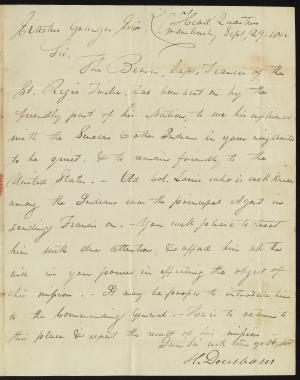 Erastus Granger Esqr
Head Quarters
Greenbush, Sept. 29. 1812
Sir.
The Bearer, Capt. Francis of the
St. Regis Tribe, has been sent on by the
friendly part of his Nation, to use his influence
with the Senecas & other Indians in your neighborhood
to be quiet, & to remain friendly to the
United States. - Old Col. Louis who is well known
among the Indians was the principal Agent in
sending Francis on. - You will please to treat
him with due attention, & afford him all the
aid in your power in effecting the object of
his mission. - It may be proper to introduce him
to the Commanding General. - He is to return to
this place & report the result of his mission -
I am Sir with
H. Dearborn